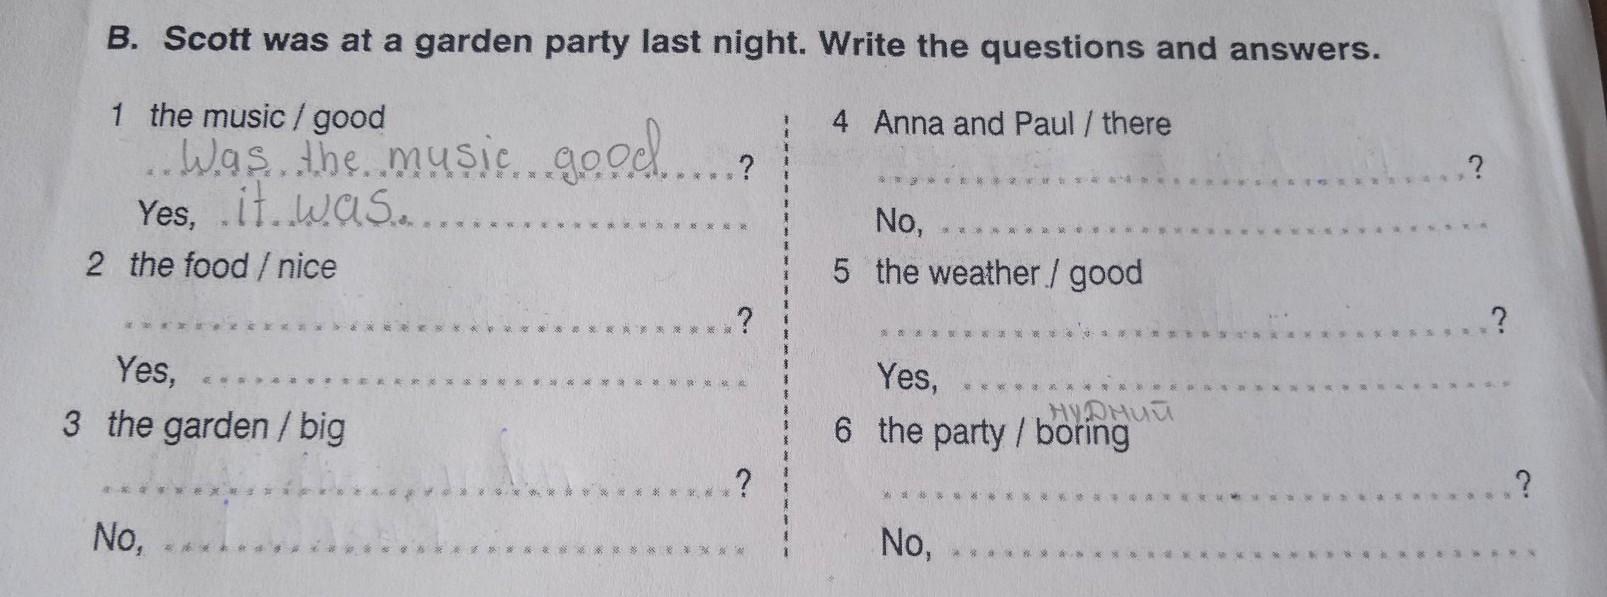 B. Scott was at a garden party last night. Write the questions and answers.
1 the music / good
Was the music good ?
Yes, it was.
2 the food / nice
?
Yes,
3 the garden / big
?
No,
4 Anna and Paul / there
?
No,
5 the weather / good
?
Yes,
нудний
6 the party / boring
?
No,